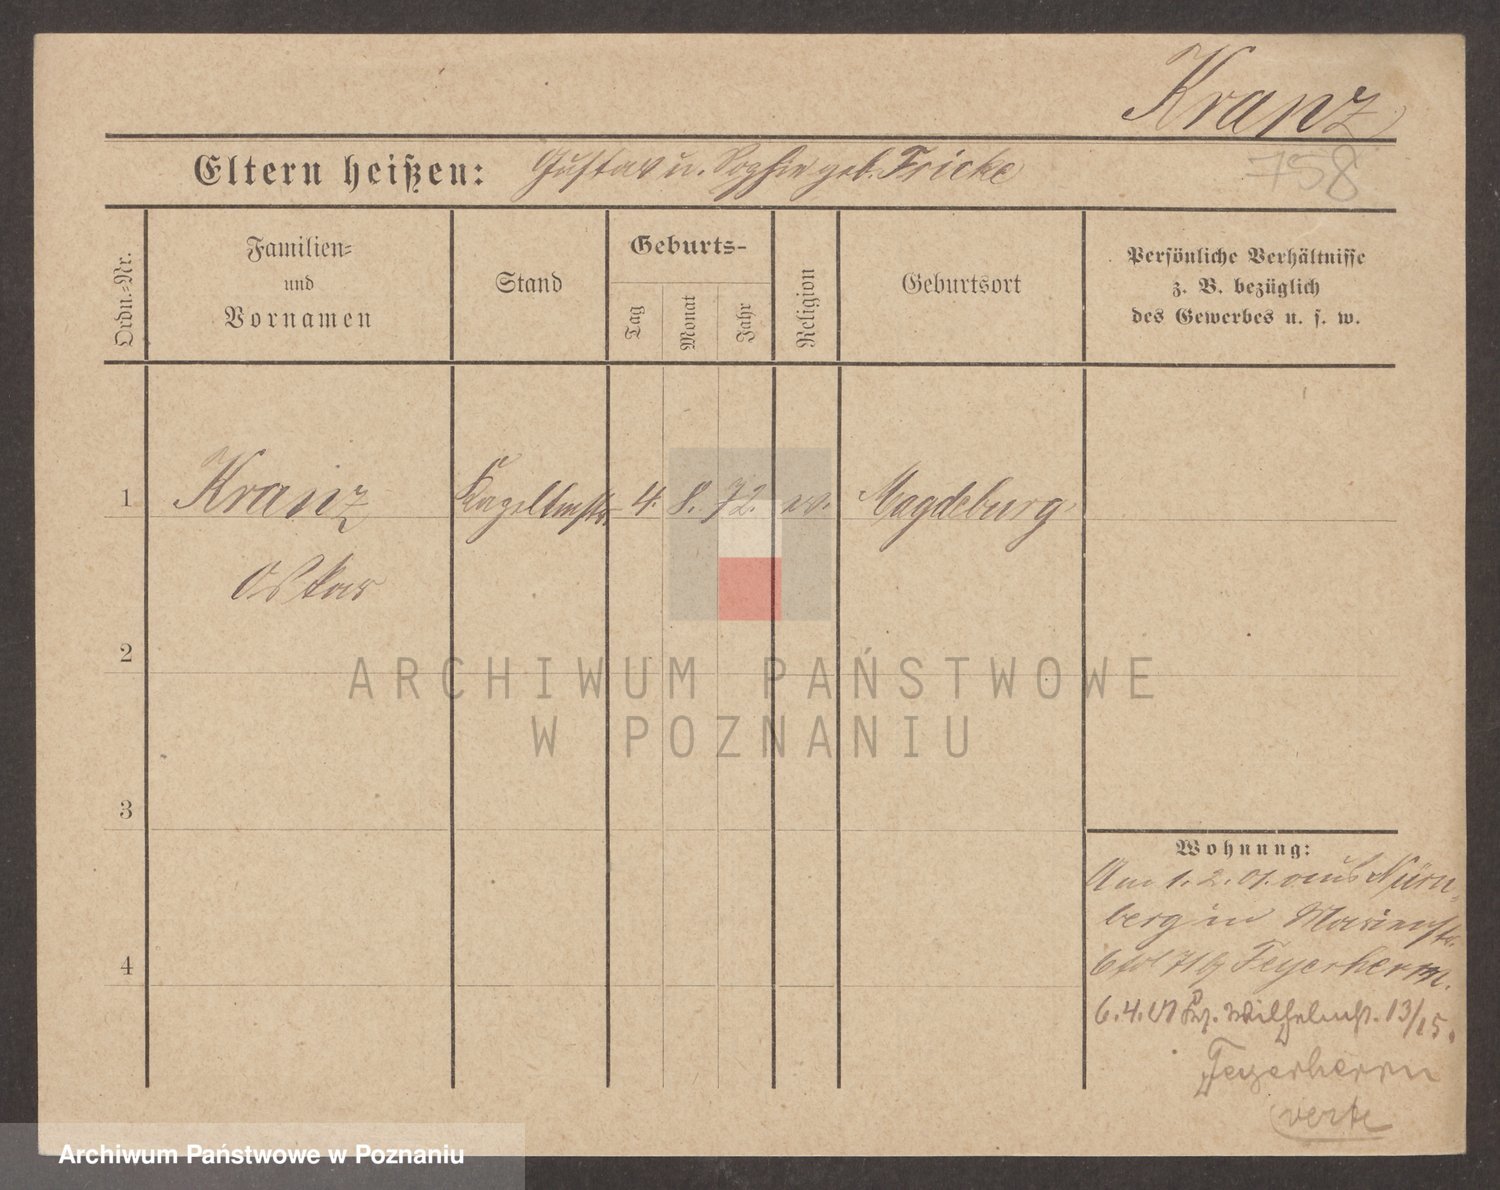 Kranz
Eltern heißen: Gustav u. Sophie geb. Fricke
758
Ordn.-Nr.
Familien- und Vornamen
Stand
Geburts-
Tag
Monat
Jahr
Religion
Geburtsort
Persönliche Verhältnisse
z. B. bezüglich
des Gewerbes u. s. w.
1 Kranz Kapellmstr. 4. 8. 72. ev. Magdeburg
Oskar
2
3
4
ARCHIWUM PAŃSTWOWE
W POZNANIU
Wohnung:
Am 1. 2. 01. aus Nürn-
berg in Marienstr.
Feyerherm.
6.4.01 Wilhelmst. 13/15.
Feyerherm
verte
Archiwum Państwowe w Poznaniu